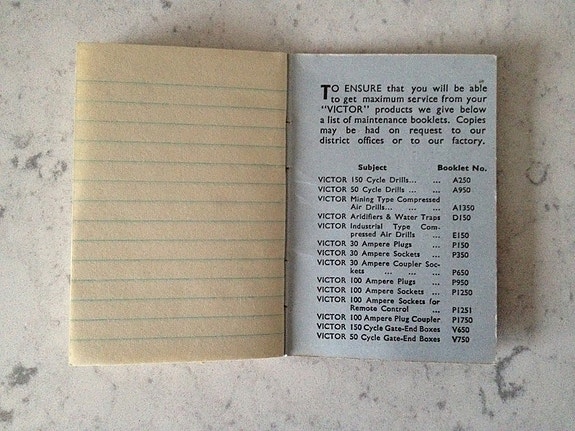 TO ENSURE that you will be able
to get maximum service from your
"VICTOR" products we give below
a list of maintenance booklets. Copies
may be had on request to our
district offices or to our factory.
Subject Booklet No.
VICTOR 150 Cycle Drills... ... A250
VICTOR 50 Cycle Drills ... ... A950
VICTOR Mining Type Compressed
Air Drills... ... ... A1350
VICTOR Aridifiers & Water Traps D150
VICTOR Industrial Type Com-
pressed Air Drills ... E150
VICTOR 30 Ampere Plugs ... P150
VICTOR 30 Ampere Sockets ... P350
VICTOR 30 Ampere Coupler Soc-
kets ... ... ... P650
VICTOR 100 Ampere Plugs ... P950
VICTOR 100 Ampere Sockets ... P1250
VICTOR 100 Ampere Sockets for
Remote Control ... P1251
VICTOR 100 Ampere Plug Coupler P1750
VICTOR 150 Cycle Gate-End Boxes V650
VICTOR 50 Cycle Gate-End Boxes V750